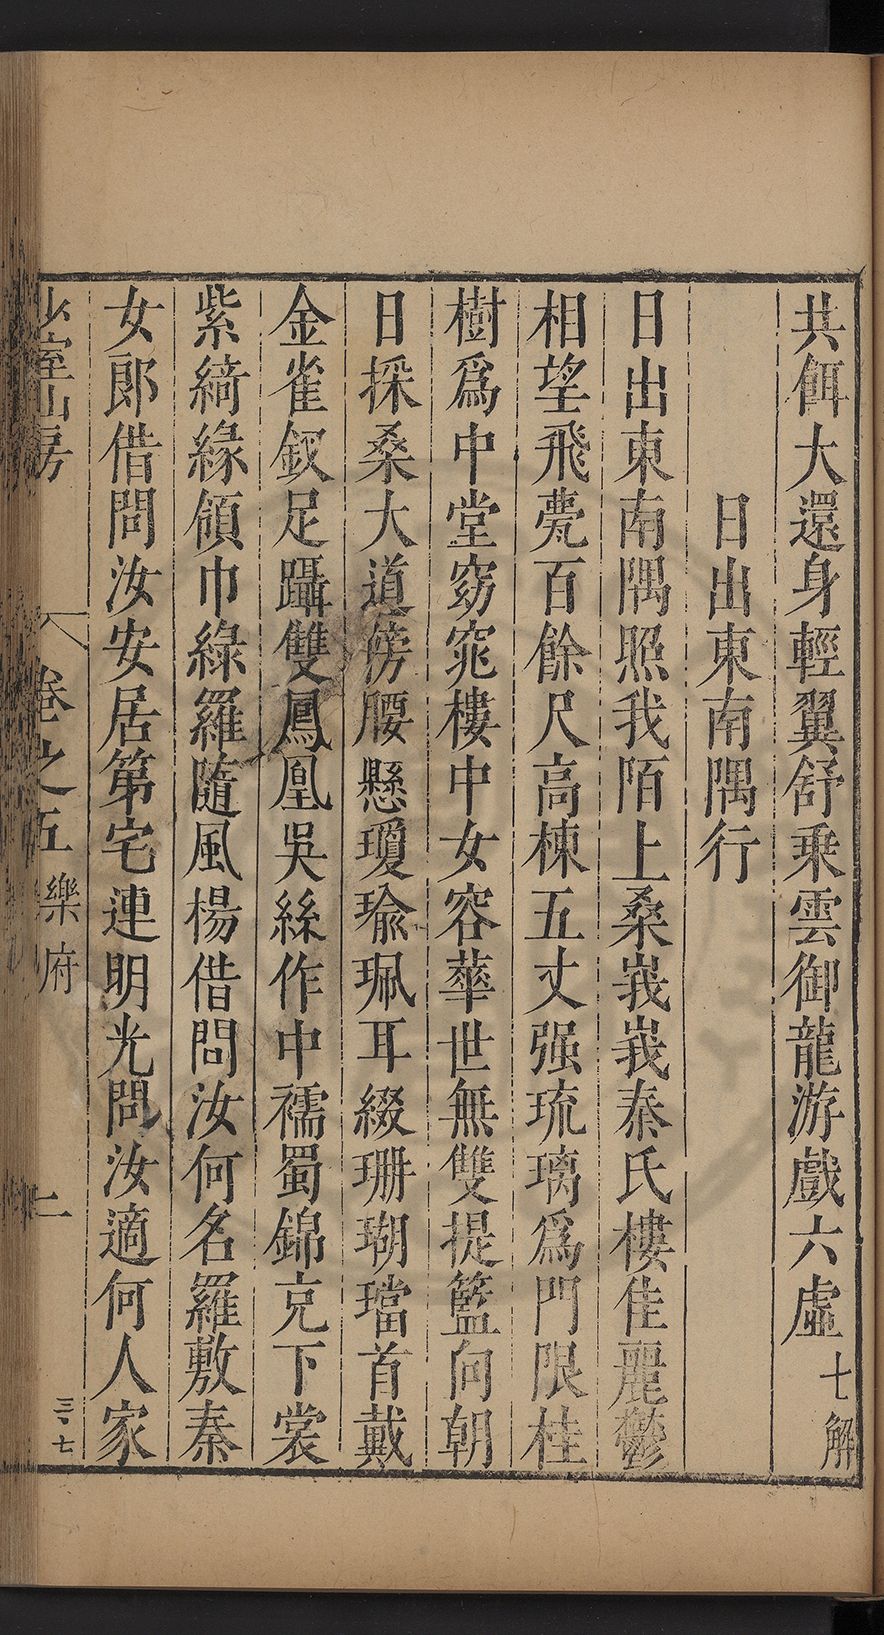 共餌大還身輕翼舒乗雲御龍游戲六虛七解
日出東南隅行
日出東南隅照我陌上桑峩峩秦氏樓佳麗鬱
相望飛甍百餘尺高棟五丈强琉璃爲門限桂
樹爲中堂窈窕樓中女容華世無雙提籃向朝
日採桑大道傍腰懸瓊瑜珮耳綴珊瑚璫首戴
金雀釵足躡雙鳳凰吳絲作中襦蜀錦充下裳
紫綺緣領巾綠羅隨風楊借問汝何名羅敷秦
女郎借問汝安居第宅連明光問汝適何人家
少室山房 卷之五 樂府 二 三、七